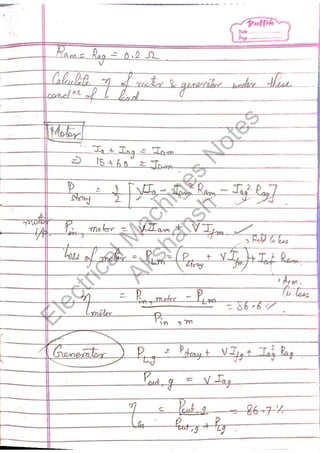 Dolfin
Date
Page
Ram = Rag = 0.2 Ω
Calculate η of motor & generator under these
condns of load
Motor
Ia + Iag = Iam
⇒ 15 + 60 = Iam
Pstray = 1/2 [VIa - Iam² Ram - Iag² Rag]
motor i/p. Pin, motor = VIam + VIfm
Field Cu loss
Loss of motor = PLm = (Pstray + VIfm) + Iam² Ram
Arm. Cu loss
ηmotor = (Pin, motor - PLm) / Pin, m = 86.6 %
Generator PLg = Pstray + VIfg + Iag² Rag
Pout, g = VIag
ηG = Pout, g / (Pout, g + PLg) = 86.7 %
Electrical Machines Notes
Akshansh